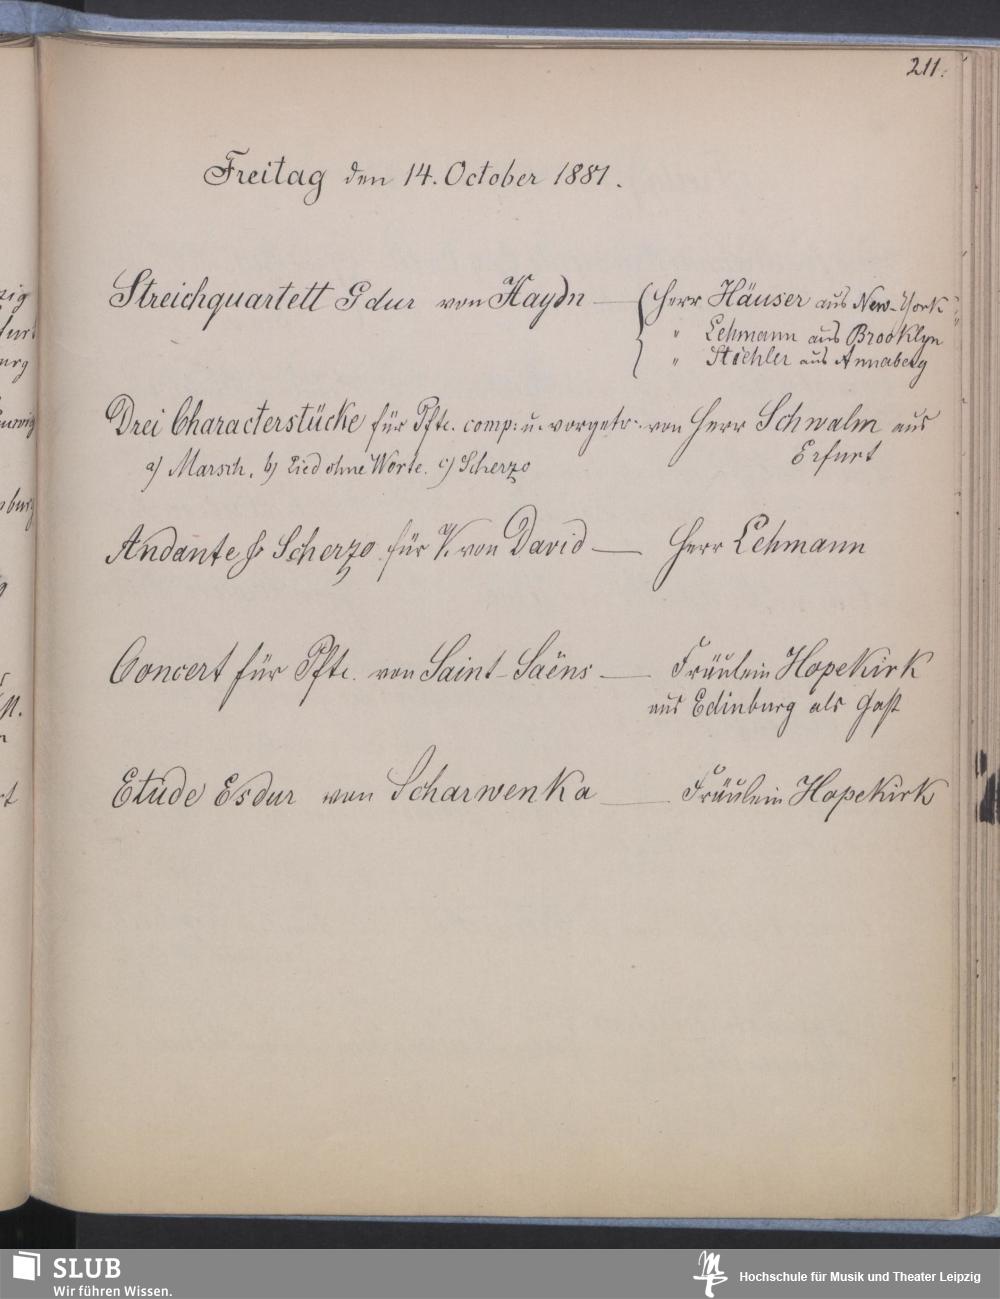 211.
Freitag den 14. October 1881.
Streichquartett Gdur von Haydn — Herr Häuser aus New-York
" Lehmann aus Brooklyn
" Stöhler aus Annaberg
Drei Characterstücke für Pfte. comp: u. vorgetr: von Herr Schwalm aus
Erfurt
a) Marsch. b) Lied ohne Worte. c) Scherzo
Andante & Scherzo für V. von David — Herr Lehmann
Concert für Pfte. von Saint-Saëns — Fräulein Hopekirk
aus Edinburg als Gast
Etude Esdur von Scharwenka — Fräulein Hopekirk
SLUB
Wir führen Wissen.
Hochschule für Musik und Theater Leipzig